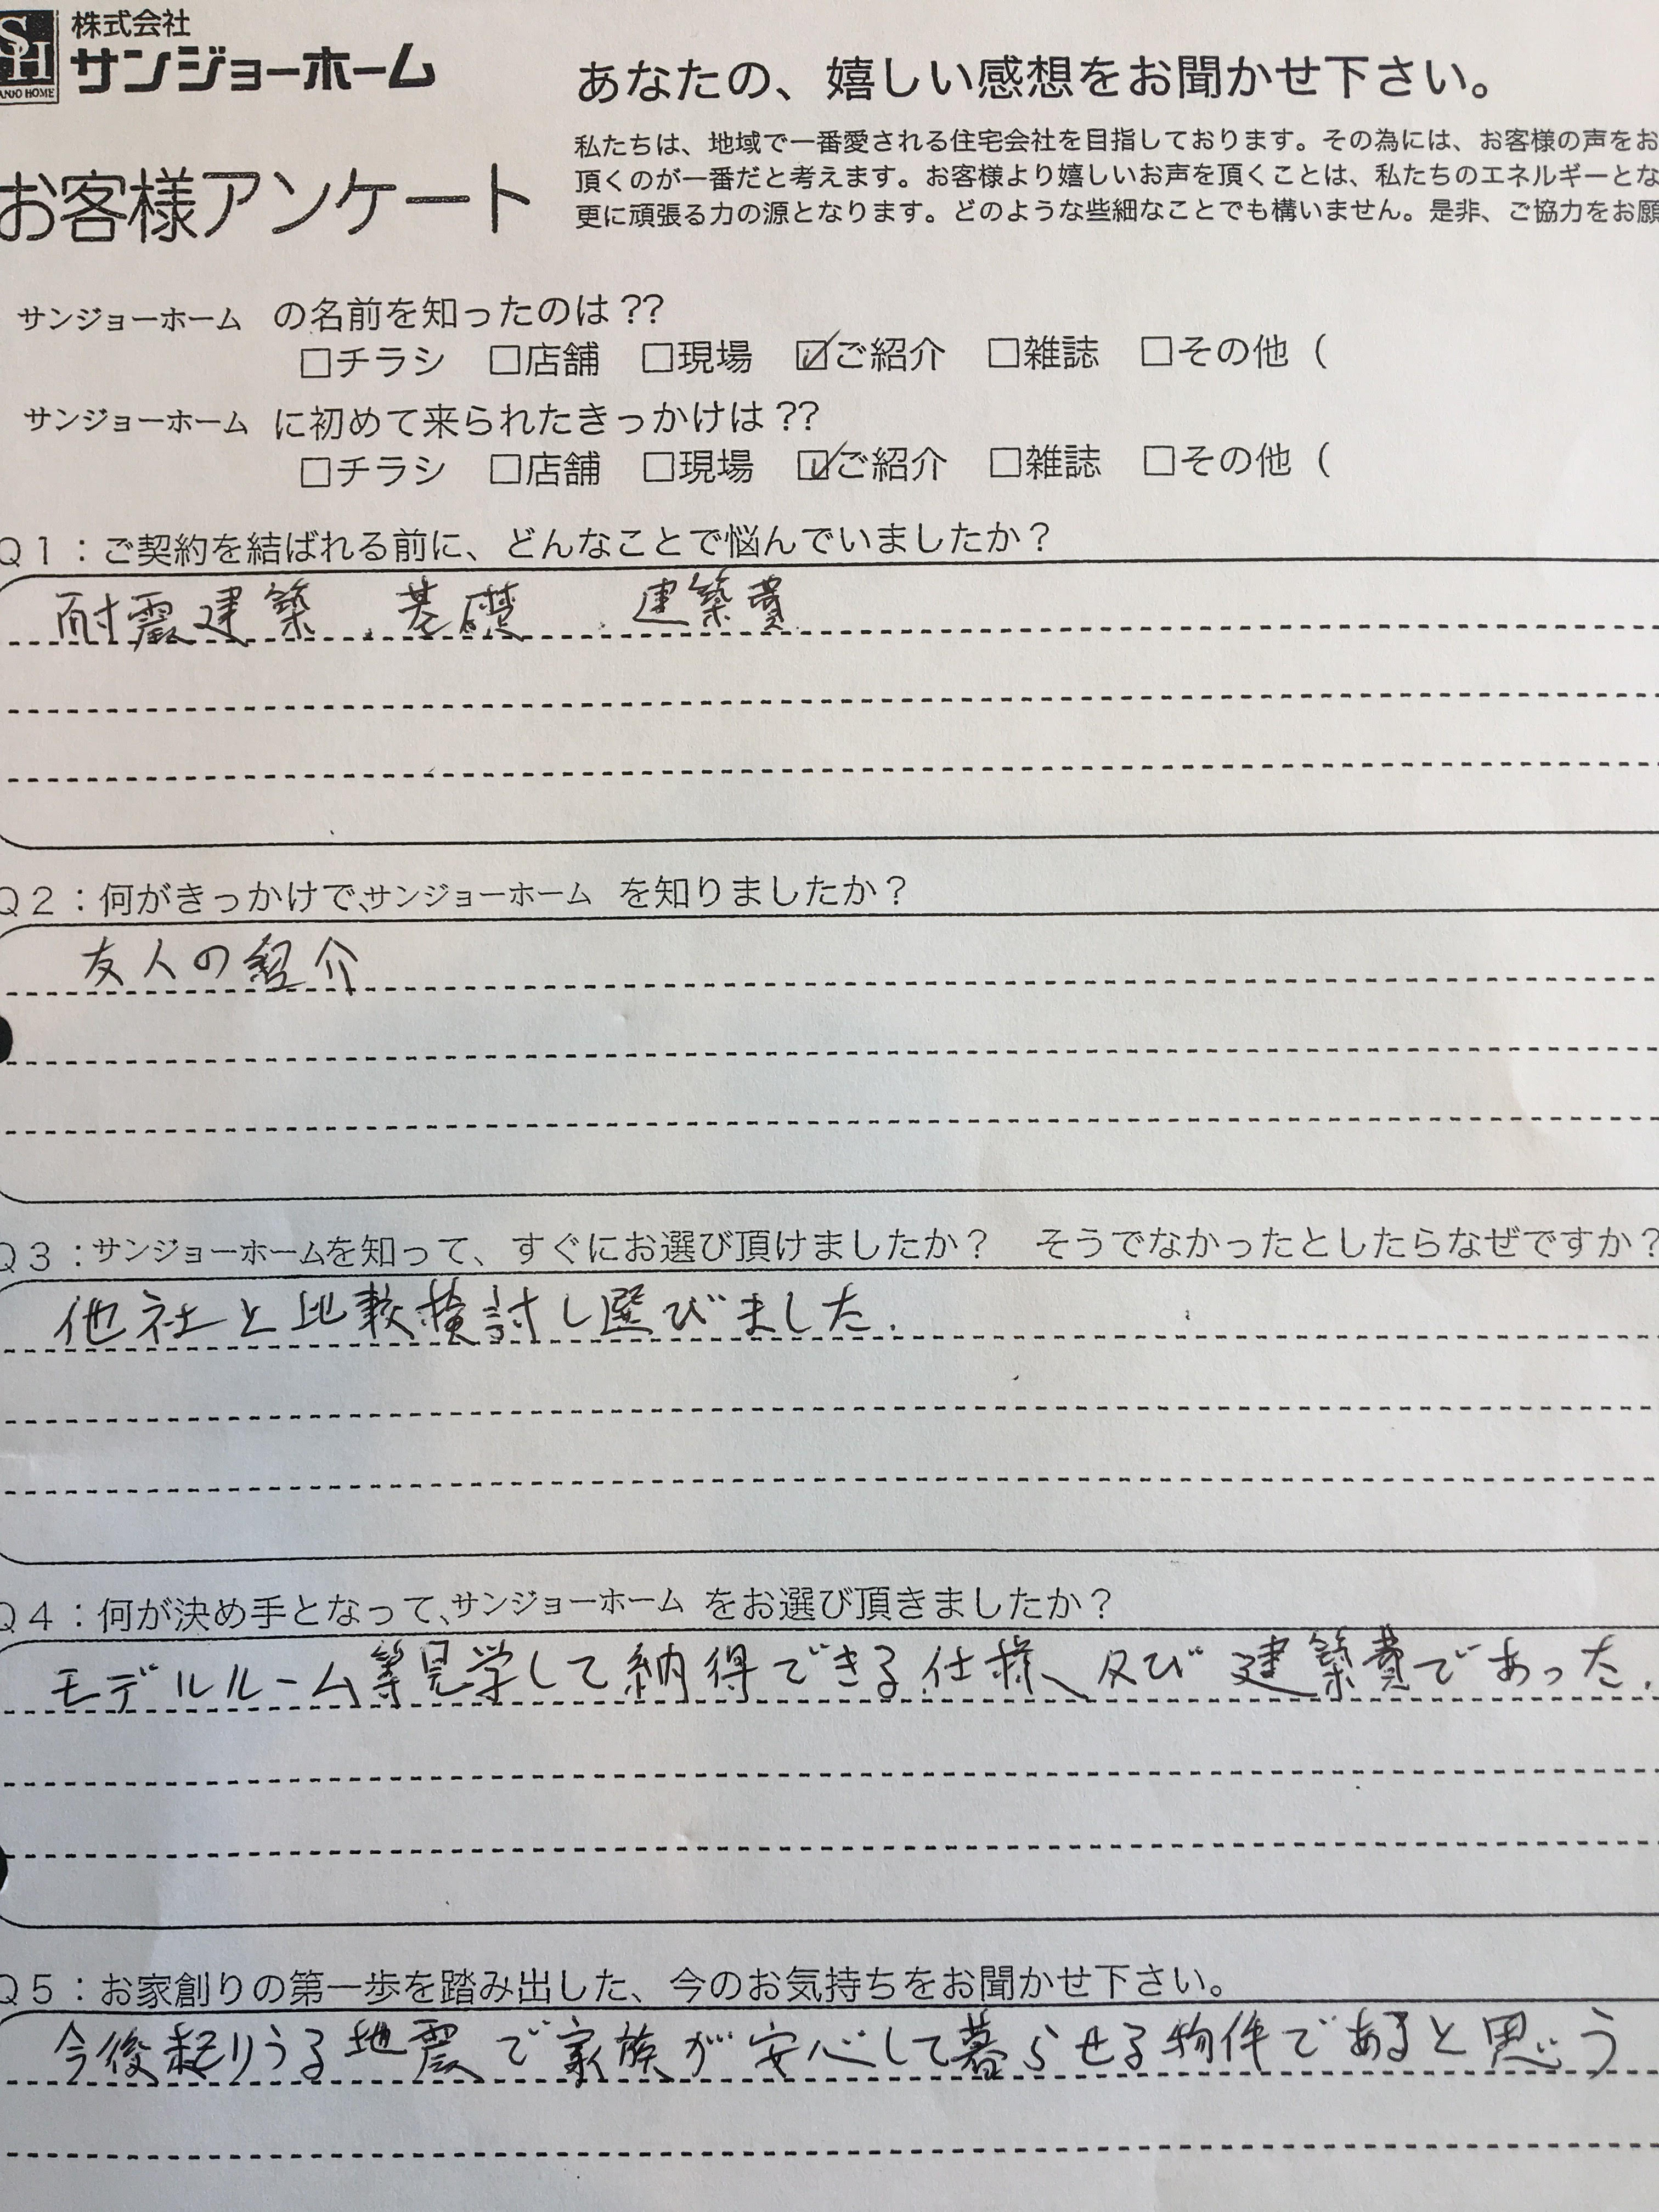 株式会社
サンジョーホーム
SH
ANJO HOME
あなたの、嬉しい感想をお聞かせ下さい。
お客様アンケート
私たちは、地域で一番愛される住宅会社を目指しております。その為には、お客様の声をお
頂くのが一番だと考えます。お客様より嬉しいお声を頂くことは、私たちのエネルギーとな
更に頑張る力の源となります。どのような些細なことでも構いません。是非、ご協力をお願
サンジョーホーム の名前を知ったのは??
□チラシ □店舗 □現場 ☑ご紹介 □雑誌 □その他（
サンジョーホーム に初めて来られたきっかけは??
□チラシ □店舗 □現場 ☑ご紹介 □雑誌 □その他（
Q1：ご契約を結ばれる前に、どんなことで悩んでいましたか？
耐震建築、基礎、建築費
Q2：何がきっかけで、サンジョーホーム を知りましたか？
友人の紹介
Q3：サンジョーホームを知って、すぐにお選び頂けましたか？ そうでなかったとしたらなぜですか？
他社と比較検討し選びました.
Q4：何が決め手となって、サンジョーホーム をお選び頂きましたか？
モデルルーム等見学して納得できる仕様、及び建築費であった.
Q5：お家創りの第一歩を踏み出した、今のお気持ちをお聞かせ下さい。
今後起りうる地震で家族が安心して暮らせる物件であると思う